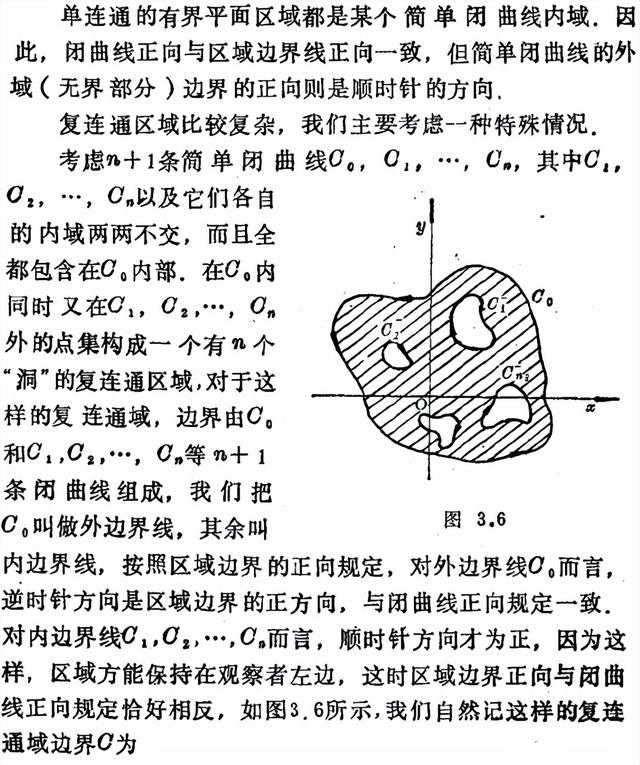 单连通的有界平面区域都是某个简单闭曲线内域．因
此，闭曲线正向与区域边界线正向一致，但简单闭曲线的外
域（无界部分）边界的正向则是顺时针的方向．
复连通区域比较复杂，我们主要考虑一种特殊情况．
考虑n+1条简单闭曲线C₀，C₁，…，Cₙ，其中C₁，
C₂，…，Cₙ以及它们各自
的内域两两不交，而且全
都包含在C₀内部．在C₀内
同时又在C₁，C₂，…，Cₙ
外的点集构成一个有n个
“洞”的复连通区域，对于这
样的复连通域，边界由C₀
和C₁，C₂，…，Cₙ等n+1
条闭曲线组成，我们把
C₀叫做外边界线，其余叫
y
C₀
C₁⁻
C₂⁻
O
x
图 3.6
内边界线，按照区域边界的正向规定，对外边界线C₀而言，
逆时针方向是区域边界的正方向，与闭曲线正向规定一致．
对内边界线C₁，C₂，…，Cₙ而言，顺时针方向才为正，因为这
样，区域方能保持在观察者左边，这时区域边界正向与闭曲
线正向规定恰好相反，如图3.6所示，我们自然记这样的复连
通域边界C为